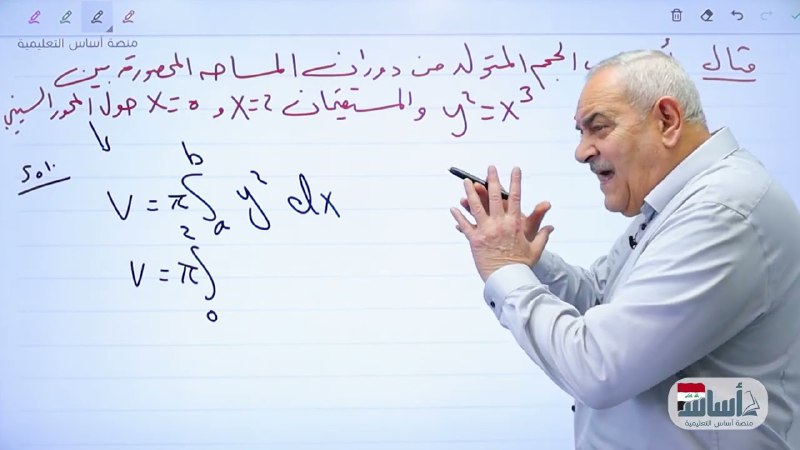 منصة أساس التعليمية
مثال الحجم المتولد من دوران المساحه المحصورة بين
y² = x³ والمستقيمان x=2 و x=0 حول المحور السيني
sol.
V = π∫ₐᵇ y² dx
V = π∫₀²
أساس
منصة أساس التعليمية